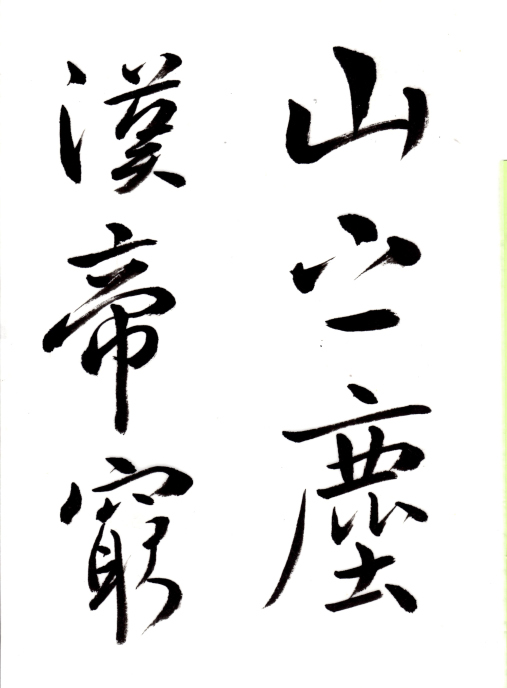 山塵
漢帝窮